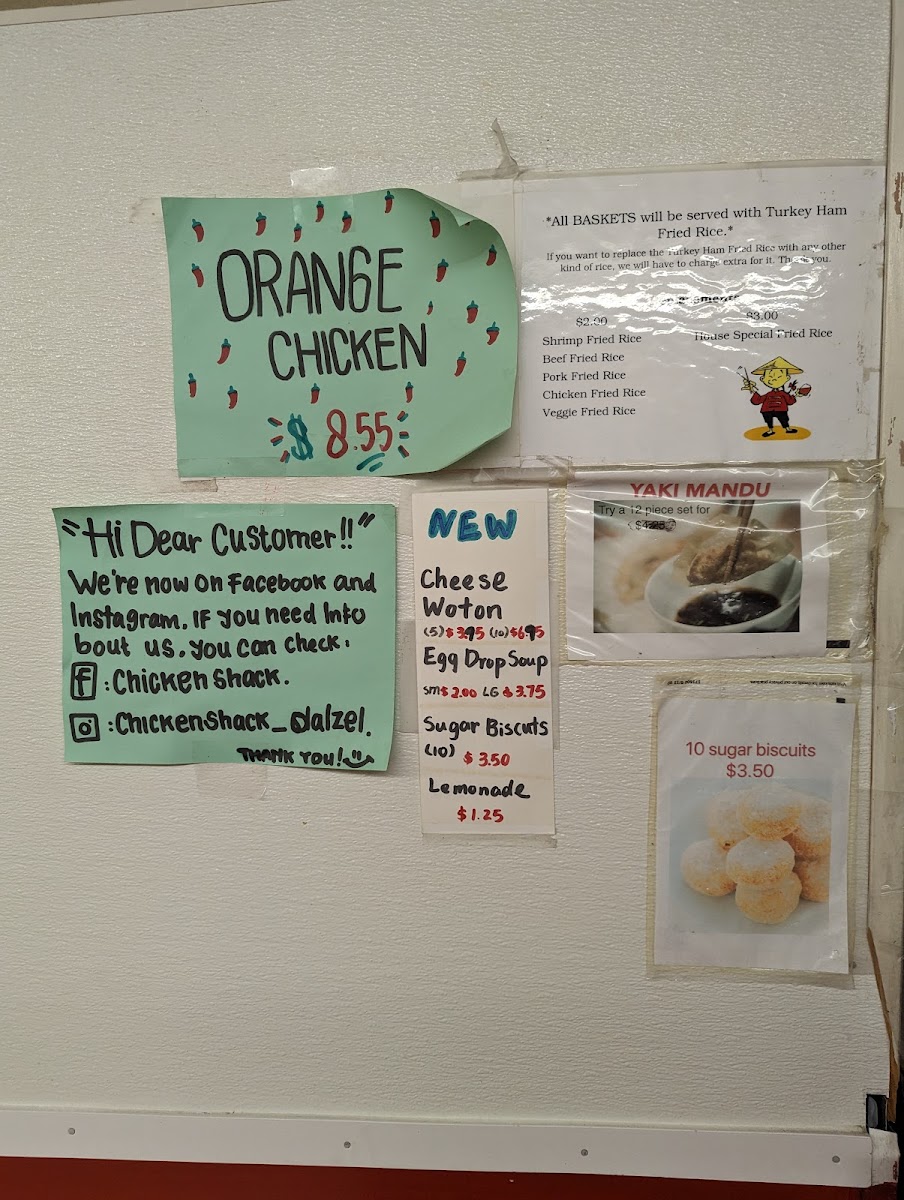 ORANGE
CHICKEN
$ 8.55
*All BASKETS will be served with Turkey Ham
Fried Rice.*
If you want to replace the Turkey Ham Fried Rice with any other
kind of rice, we will have to charge extra for it. Thank you.
$2.00
Shrimp Fried Rice
Beef Fried Rice
Pork Fried Rice
Chicken Fried Rice
Veggie Fried Rice
$3.00
House Special Fried Rice
"Hi Dear Customer!!"
We're now on Facebook and
Instagram. IF you need Info
bout us. you can check:
f : Chicken Shack.
: Chickenshack_dalzel.
THANK YOU!
NEW
Cheese
Woton
(5) $3.95 (10) $6.95
Egg Drop Soup
SM $2.00 LG $3.75
Sugar Biscuts
(10) $3.50
Lemonade
$1.25
YAKI MANDU
Try a 12 piece set for
10 sugar biscuits
$3.50